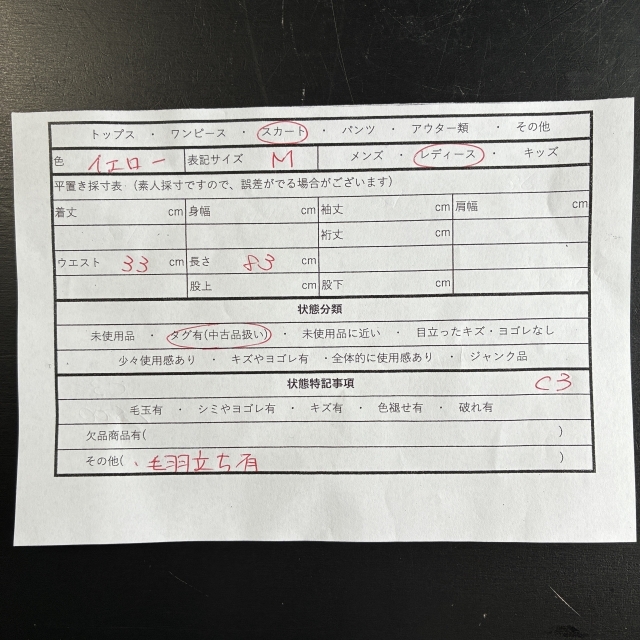 トップス ・ ワンピース ・ スカート ・ パンツ ・ アウター類 ・ その他
色 イエロー 表記サイズ M メンズ ・ レディース ・ キッズ
平置き採寸表（素人採寸ですので、誤差がでる場合がございます）
着丈 cm 身幅 cm 袖丈 cm 肩幅 cm
裄丈 cm
ウエスト 33 cm 長さ 83 cm
股上 cm 股下 cm
状態分類
未使用品 ・ タグ有(中古品扱い) ・ 未使用品に近い ・ 目立ったキズ・ヨゴレなし
少々使用感あり ・ キズやヨゴレ有 ・全体的に使用感あり ・ ジャンク品
状態特記事項 C3
毛玉有 ・ シミやヨゴレ有 ・ キズ有 ・ 色褪せ有 ・ 破れ有
欠品商品有( )
その他( ・毛羽立ち有 )